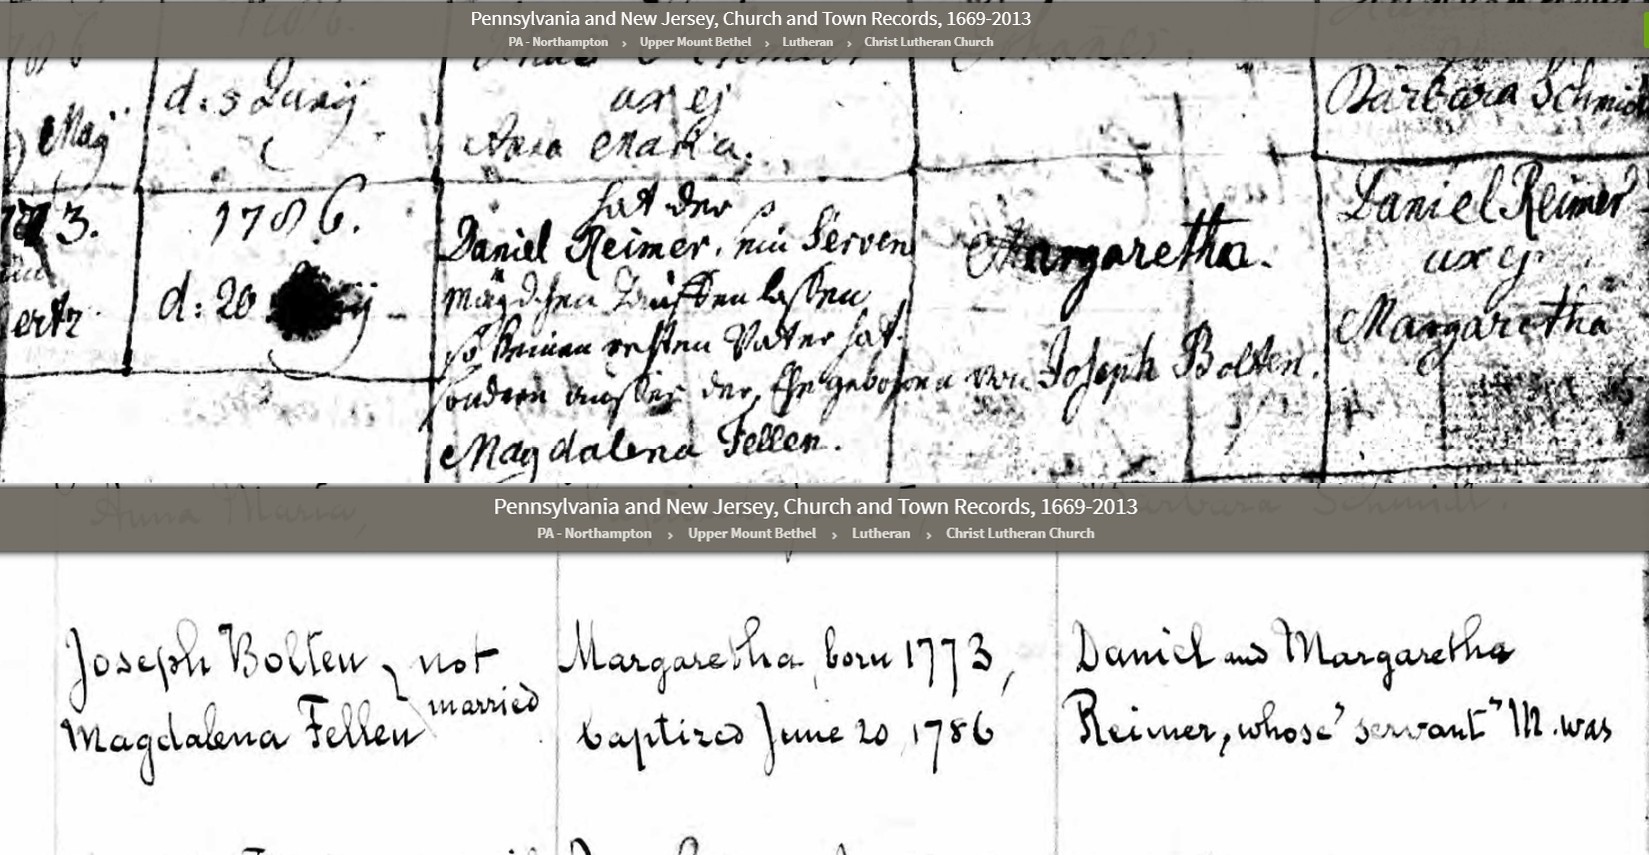 Pennsylvania and New Jersey, Church and Town Records, 1669-2013
PA - Northampton › Upper Mount Bethel › Lutheran › Christ Lutheran Church
d: 5 Junij
ux ej
Barbara Schmid
Maij
Anna Maria.
1773.
1786.
hat der
Daniel Reimer
Daniel Reimer. ein Serven
Margaretha.
ux ej.
d: 20
mägdchen Tauffen lassen
Margaretha
ertz
so keinen rechten Vater hat.
sondern ausser der Ehe gebohren von Joseph Bolten.
Magdalena Fellen.
Pennsylvania and New Jersey, Church and Town Records, 1669-2013
PA - Northampton › Upper Mount Bethel › Lutheran › Christ Lutheran Church
Anna Maria,
Barbara Schmidt.
Joseph Bolten } not
Magdalena Fellen married
Margaretha, born 1773,
baptized June 20, 1786
Daniel and Margaretha
Reimer, whose "servant" M. was